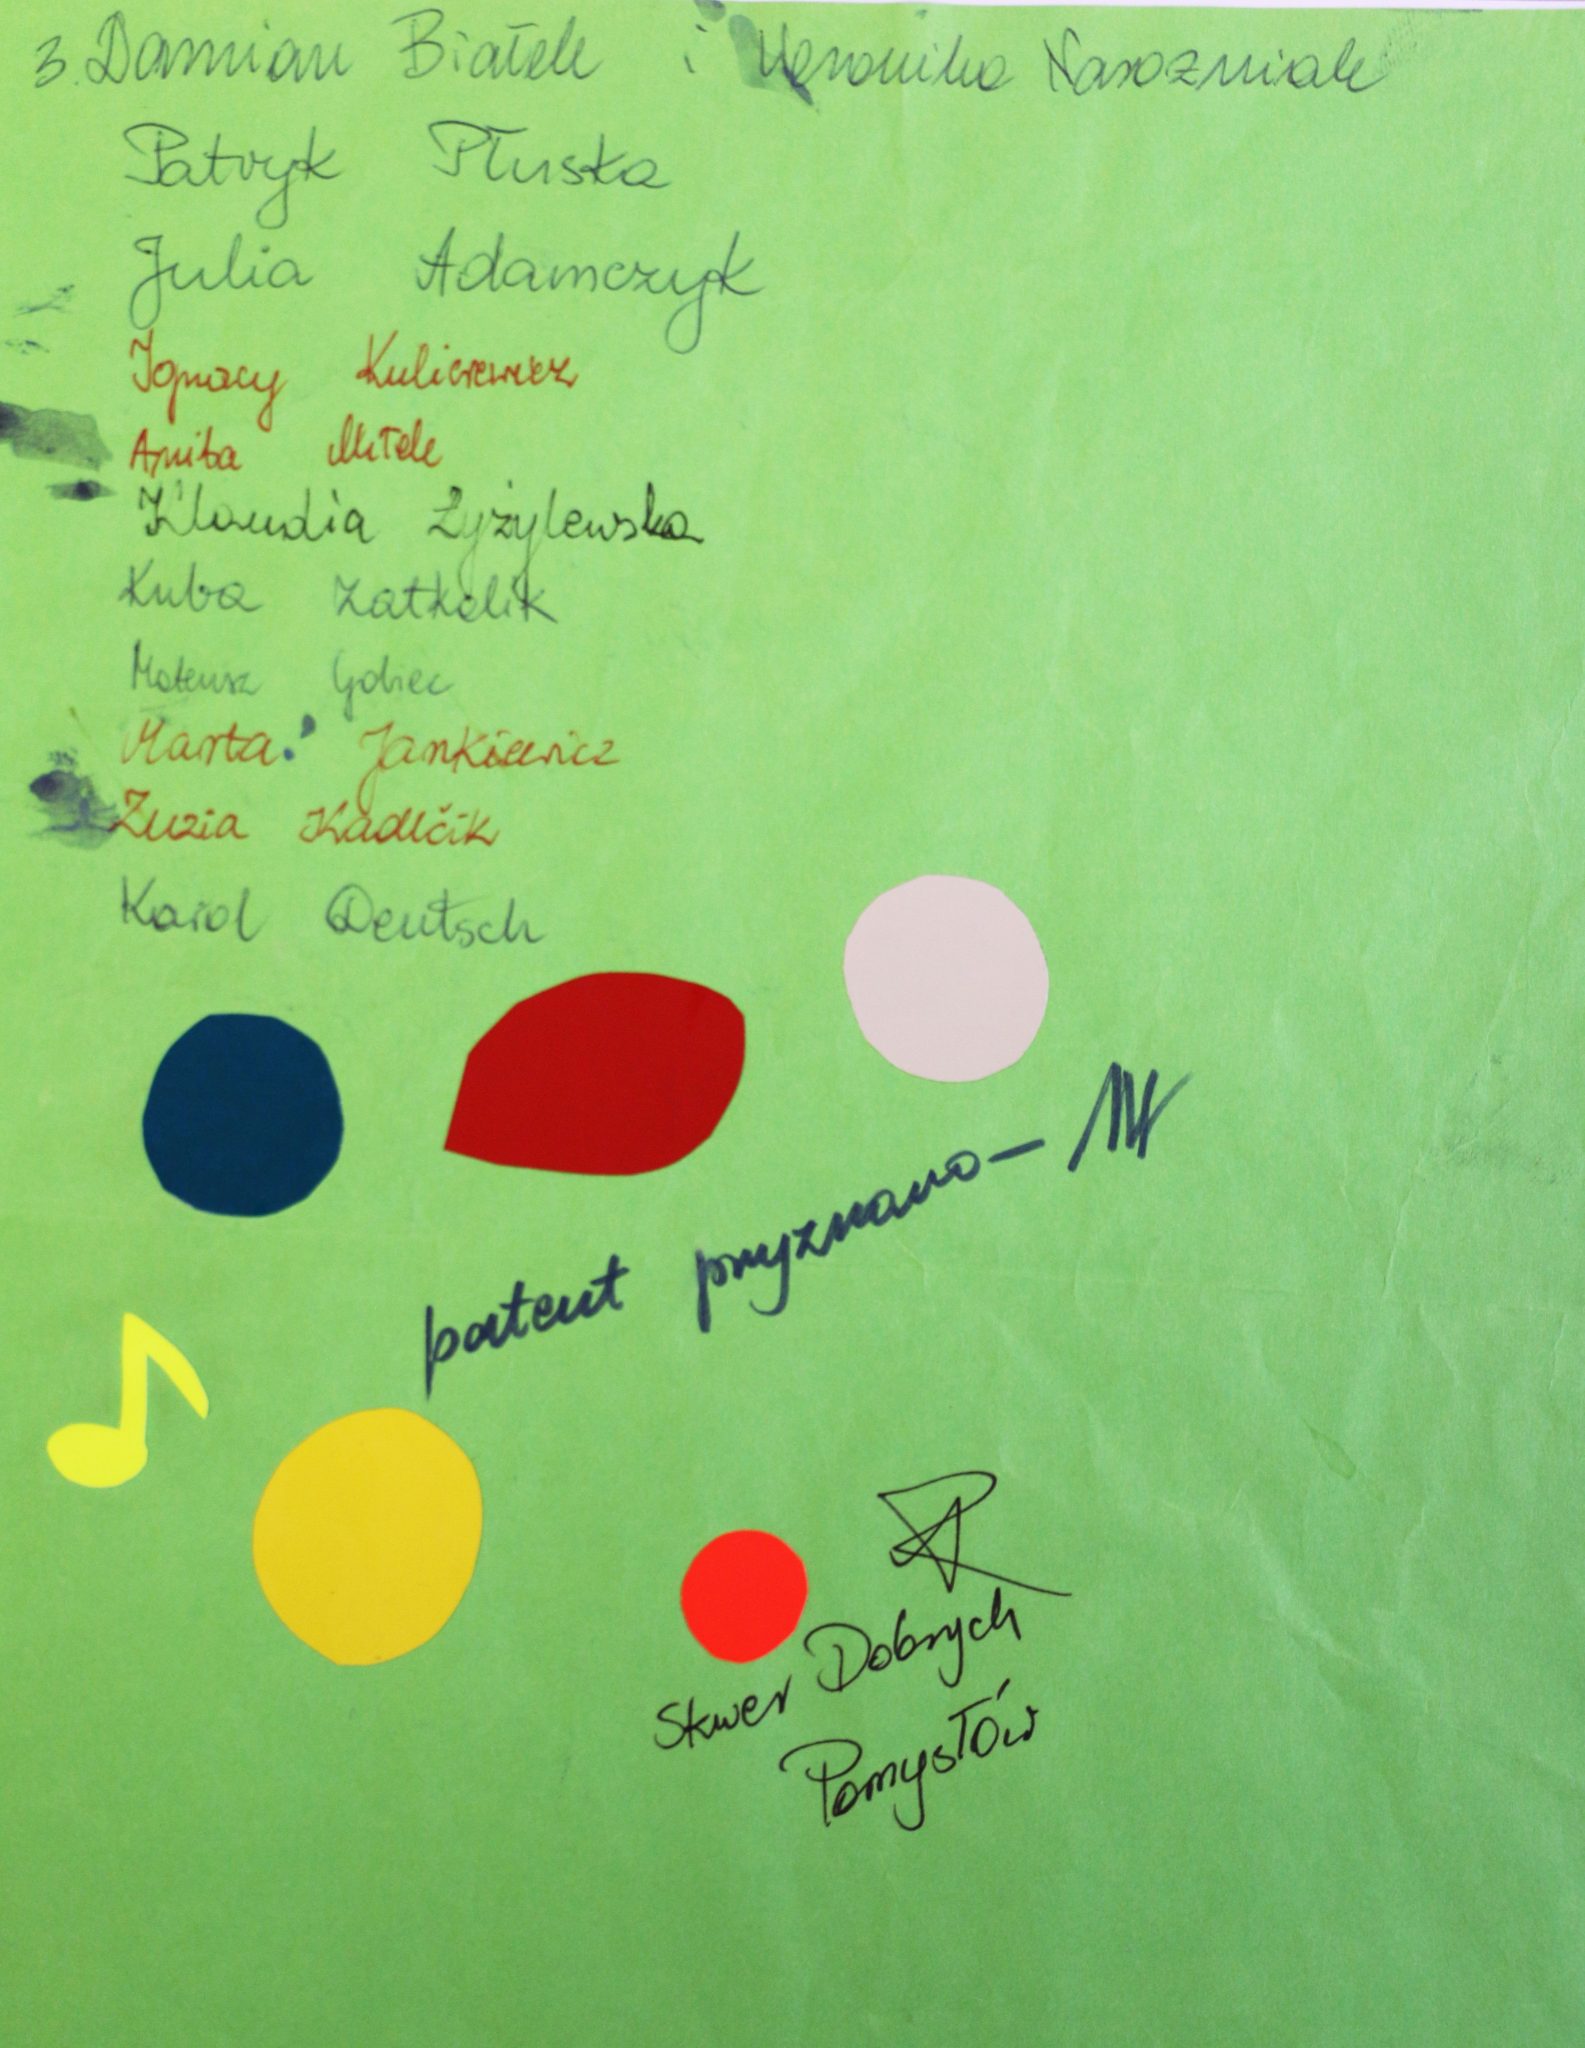 3. Damian Białek i Weronika
Patryk Płuska
Julia Adamczyk
Ignacy
Klaudia Zyżylewska
Kuba Zatkalik
Mateusz Gobiec
Marta Jankiewicz
Zuzia Kadlčik
Karol Deutsch
patent pryznano –
Skwer Dobrych
Pomysłów